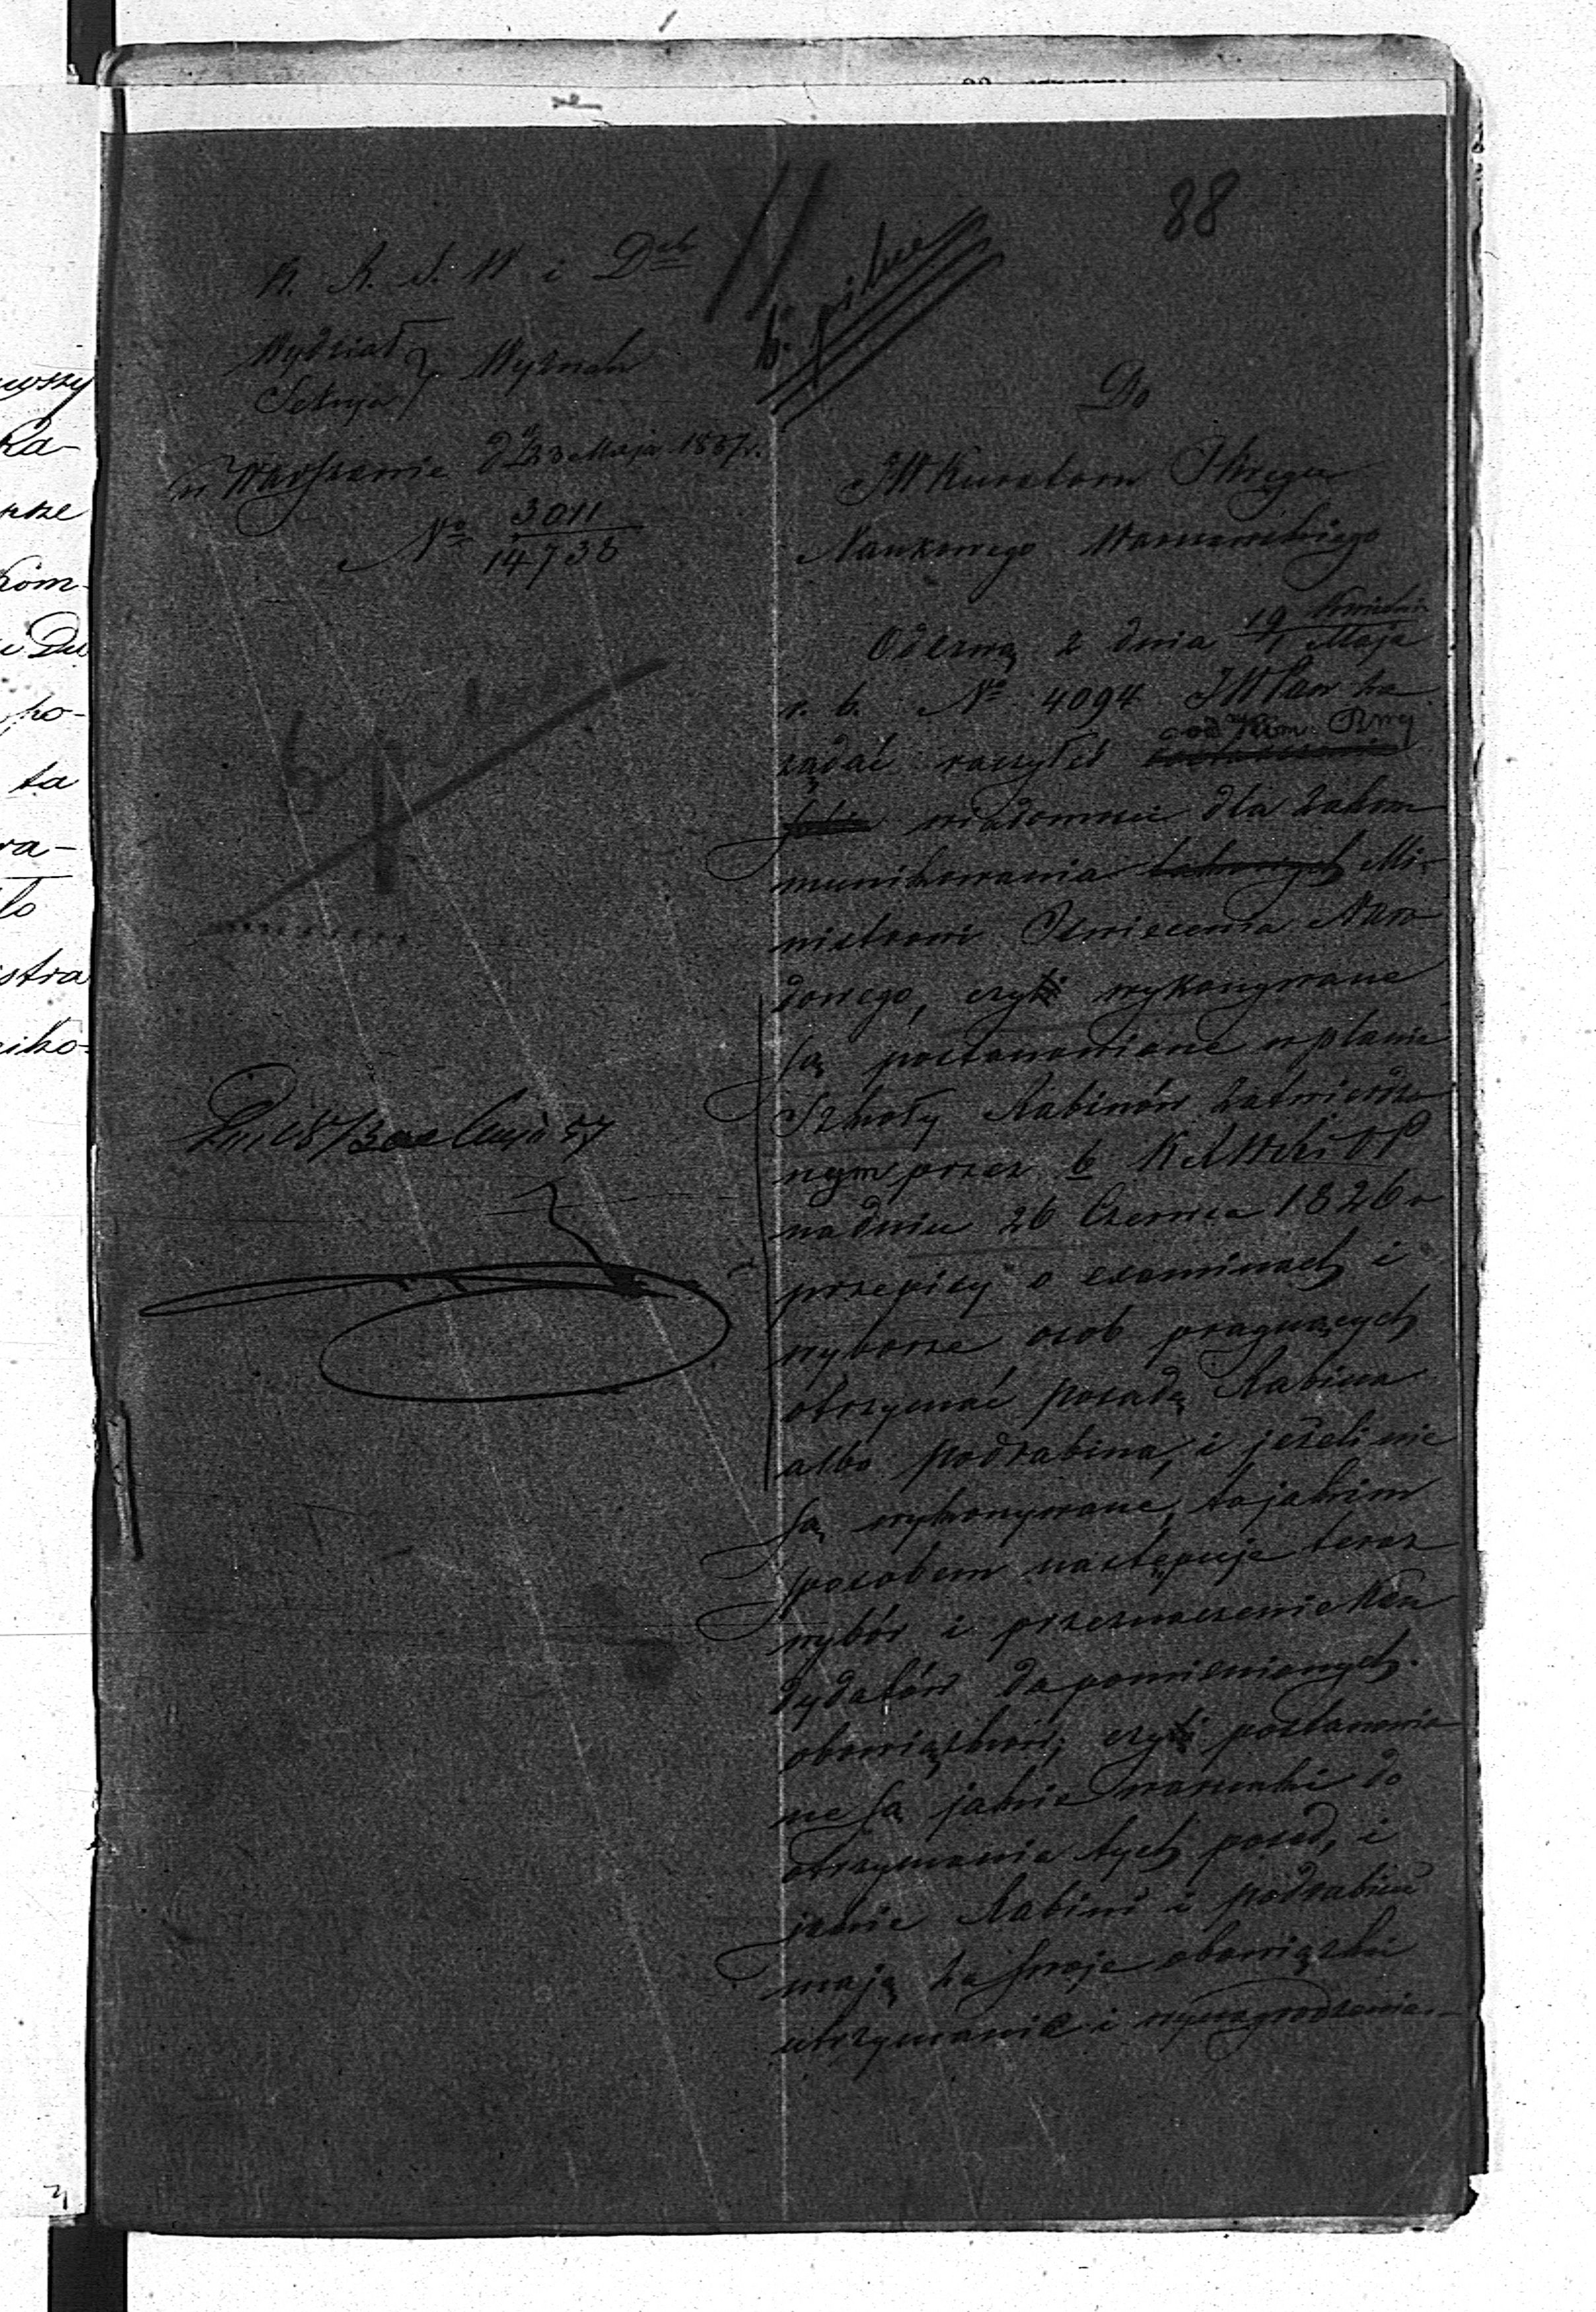 88
K. R. S. W i D<sup>ch</sup>
b. pilne
Wydział
Sekcya } Wyznań
w Warszawie d 23 Maja 1857 r.
N<sup>o</sup> 3011
14738
b pilne
Do
JW Kuratora Okręgu
Naukowego Warszawskiego
Odezwą z dnia 19 Kwietnia / 1 Maja
r. b. N<sup>o</sup> 4094 JW Pan za
żądać raczyłeś od Kom. Rząj
wiadomości dla zakom
munikowania Mi-
nistrowi Oświecenia Naro
dowego, czyli wykonywane
są postanowione w planie
Szkoły Rabinów zatwierdzo
nym przez b K R W R i O P
na dniu 26 Czerwca 1826 r
przepisy o examinach i
wyborze osób pragnących
otrzymać posadę Rabina
albo podrabina, i jeżeli nie
są wykonywane, to jakim
sposobem następuje teraz
wybór i przeznaczenie Kan
dydatów do pomienionych
obowiązków; czyli postanowio
ne są jakie warunki do
otrzymania tych posad, i
jakie Rabini i podrabini
mają za swoje obowiązki
utrzymanie i wynagrodzenie.
wszy
Ka-
rze
Kom-
i Du
po-
ta
ra-
ło
stra
niko-